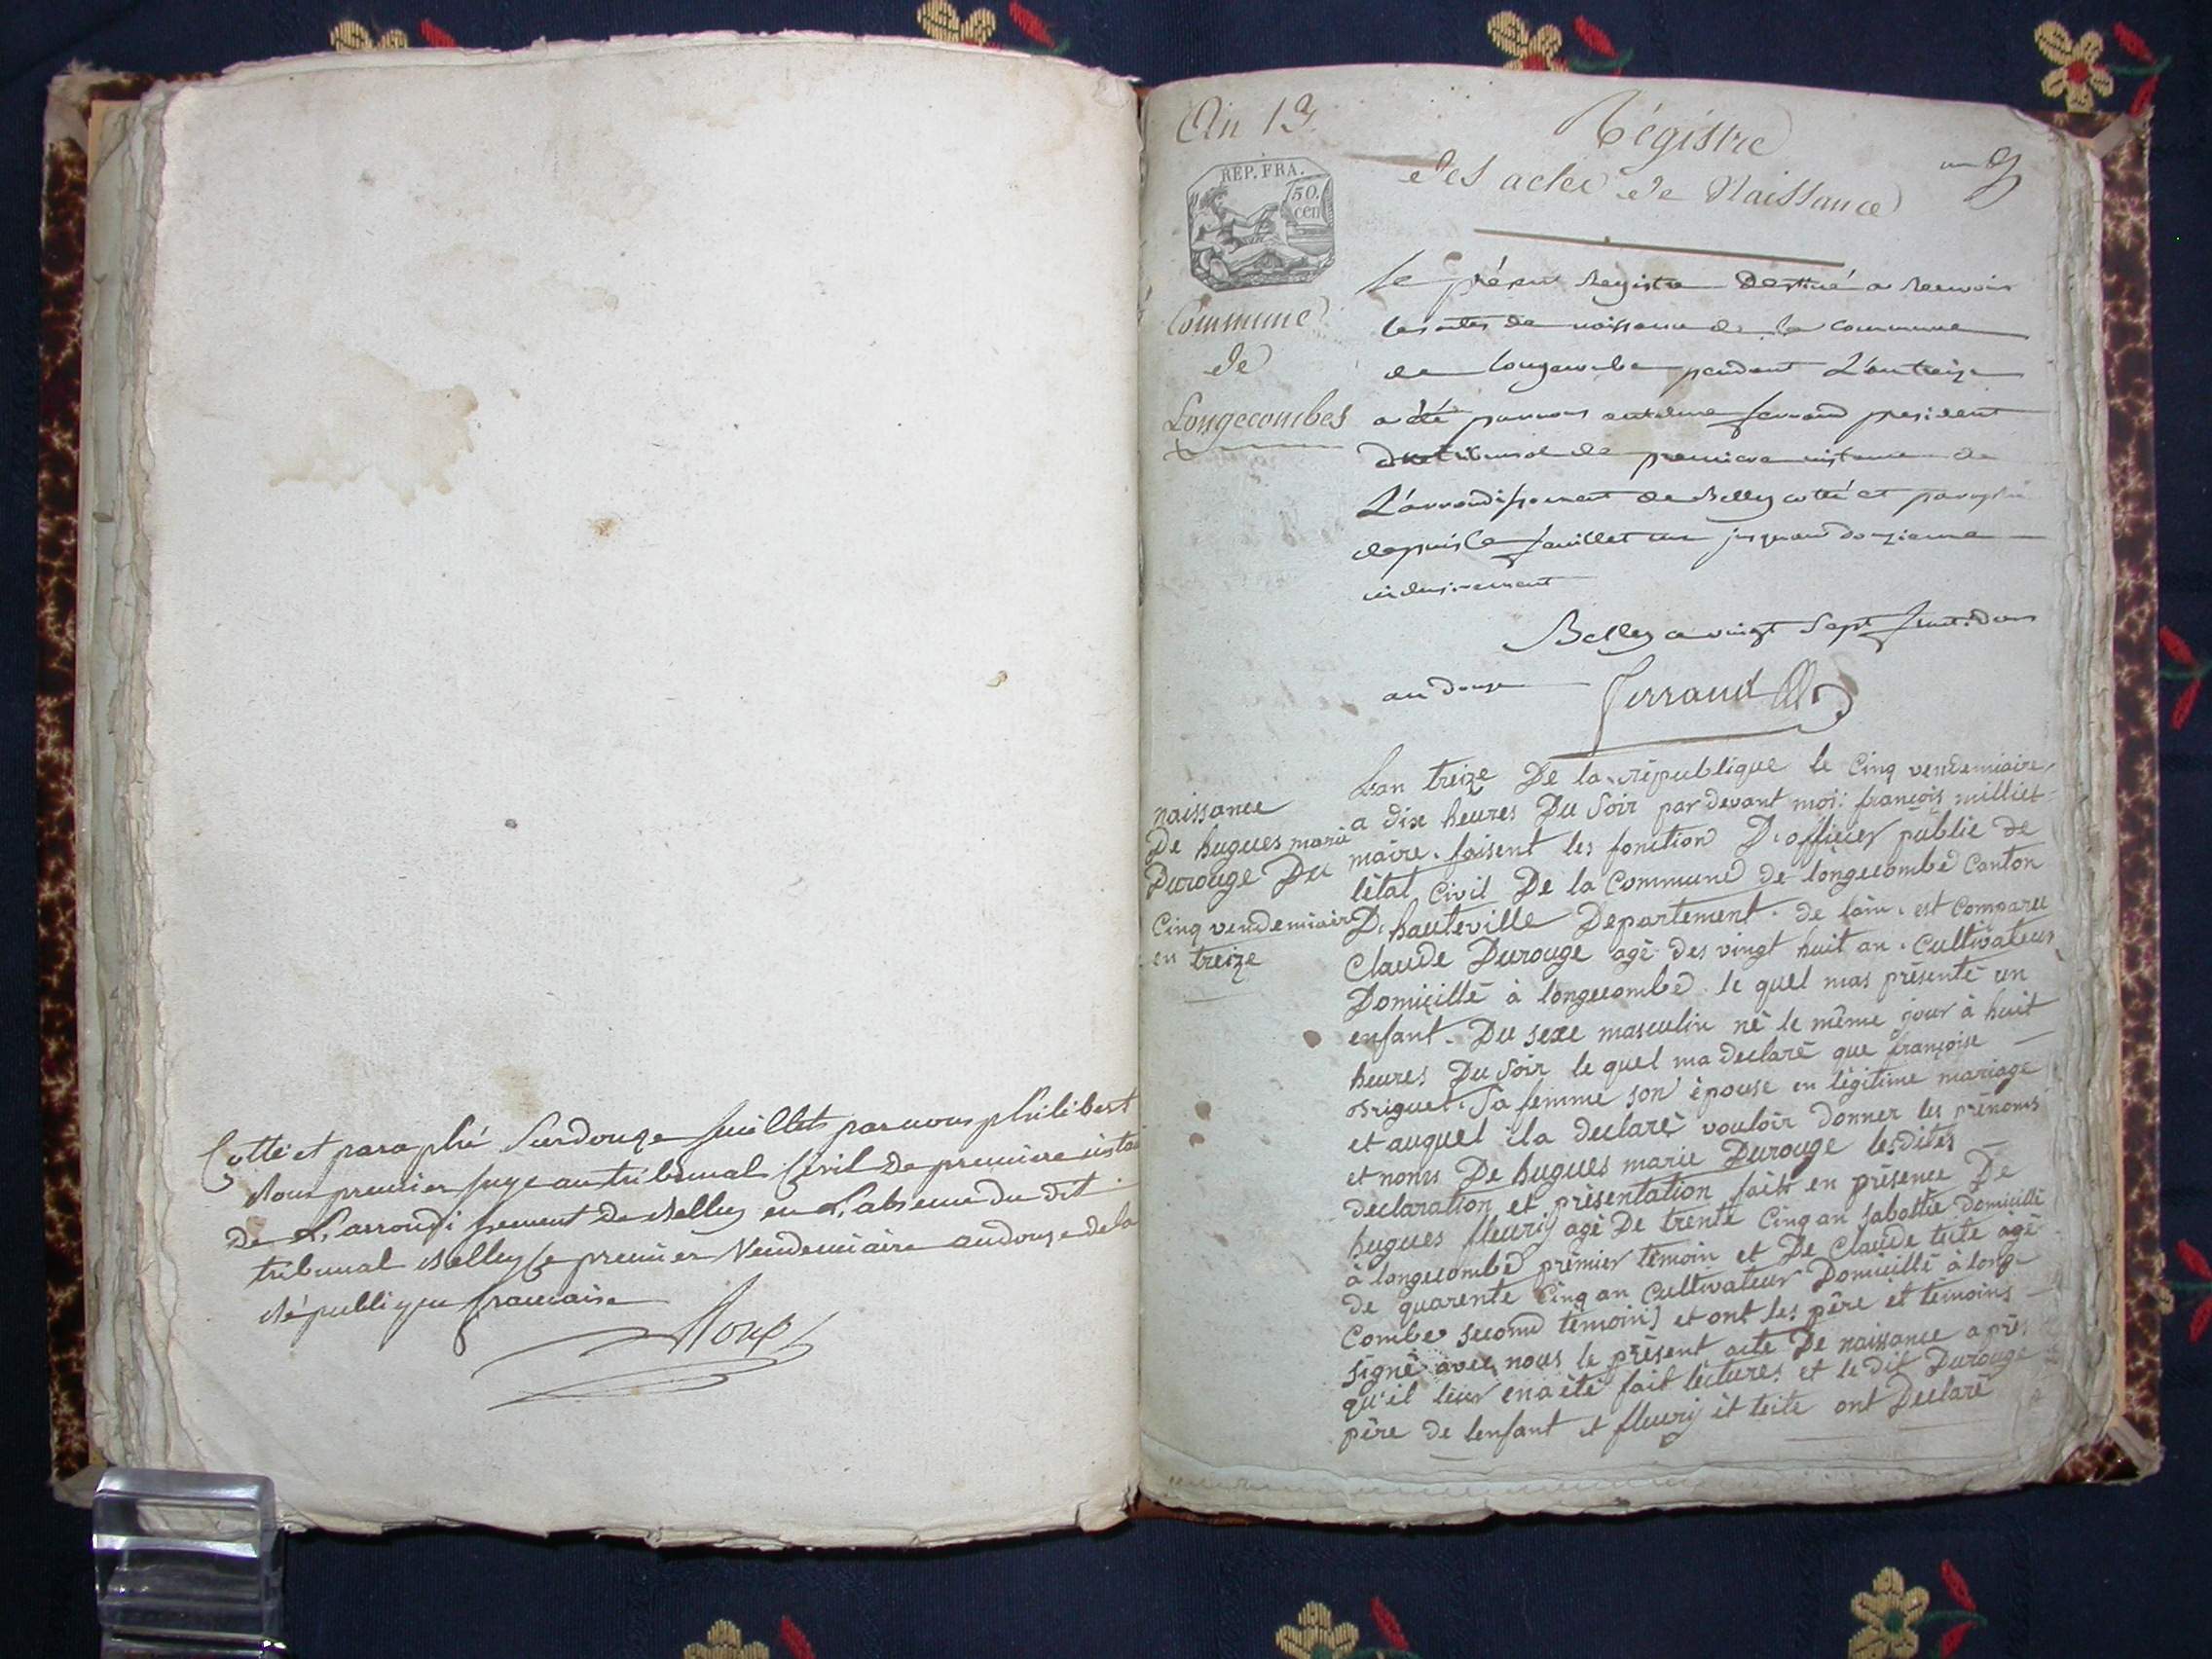 Cotté et paraphé Surdouze feuillets par nous philibert
Roux premier juge au tribunal Civil de premiere insta
de L'arrondissement de Belley en L'absence du dit
tribunal Belley le premier Vendemiaire an douze de la
République francaise
Roux
An 13.
Régistre
des acte de Naissance
un
REP. FRA.
50.
cen
Commune
de
Longecombes
le présent Registre Destiné a recevoir
les actes de naissance de la commune
de longecombe pendant L'an treize
a été par nous antelme ferrand president
du tribunal de premiere instance de
L'arrondissement de Belley cotté et paraphé
depuis le feuillet un jusqu'au douzieme
inclusivement
Belley ce vingt Sept fructidor
an douze
ferrand
naissance
De hugues marie
Durouge Du
Cinq vendemiaire
en treize
Lan treize De la république le Cinq vendemiaire
a dix heures Du Soir par devant moi: françois milliet
maire. faisent les fonction D. officier public de
létat Civil De la Commune de longecombe Canton
D. hauteville Departement. de lain. est Comparu
Claude Durouge agé des vingt huit an. Cultivateur
Domicillé à longecombe. le quel mas présenté un
enfant. Du sexe masculin né le même jour à huit
heures Du Soir le quel ma declaré que françoise
Briguet. Sa femme son épouse en légitime mariage
et auquel ila declaré vouloir donner les prénoms
et noms De hugues marie Durouge lesdites
declaration et présentation fait en présence De
hugues fleurij agé De trente Cinq an Sabottie domicillé
à longecombe prémier témoin et De Claude teite agé
de quarente Cinq an Cultivateur Domicillé à longe
Combe second témoins et ont les père et témoins
signé avec nous le présent acte De naissance après
qu'il leur en a été fait lectures et le dit Durouge
père de lenfant et fleurij et teite ont Declaré